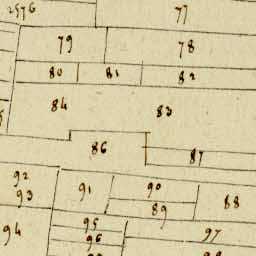 2576 77
79 78
80 81 82
84 83
86 87
92 91 90 88
93 89
94 95 97
96